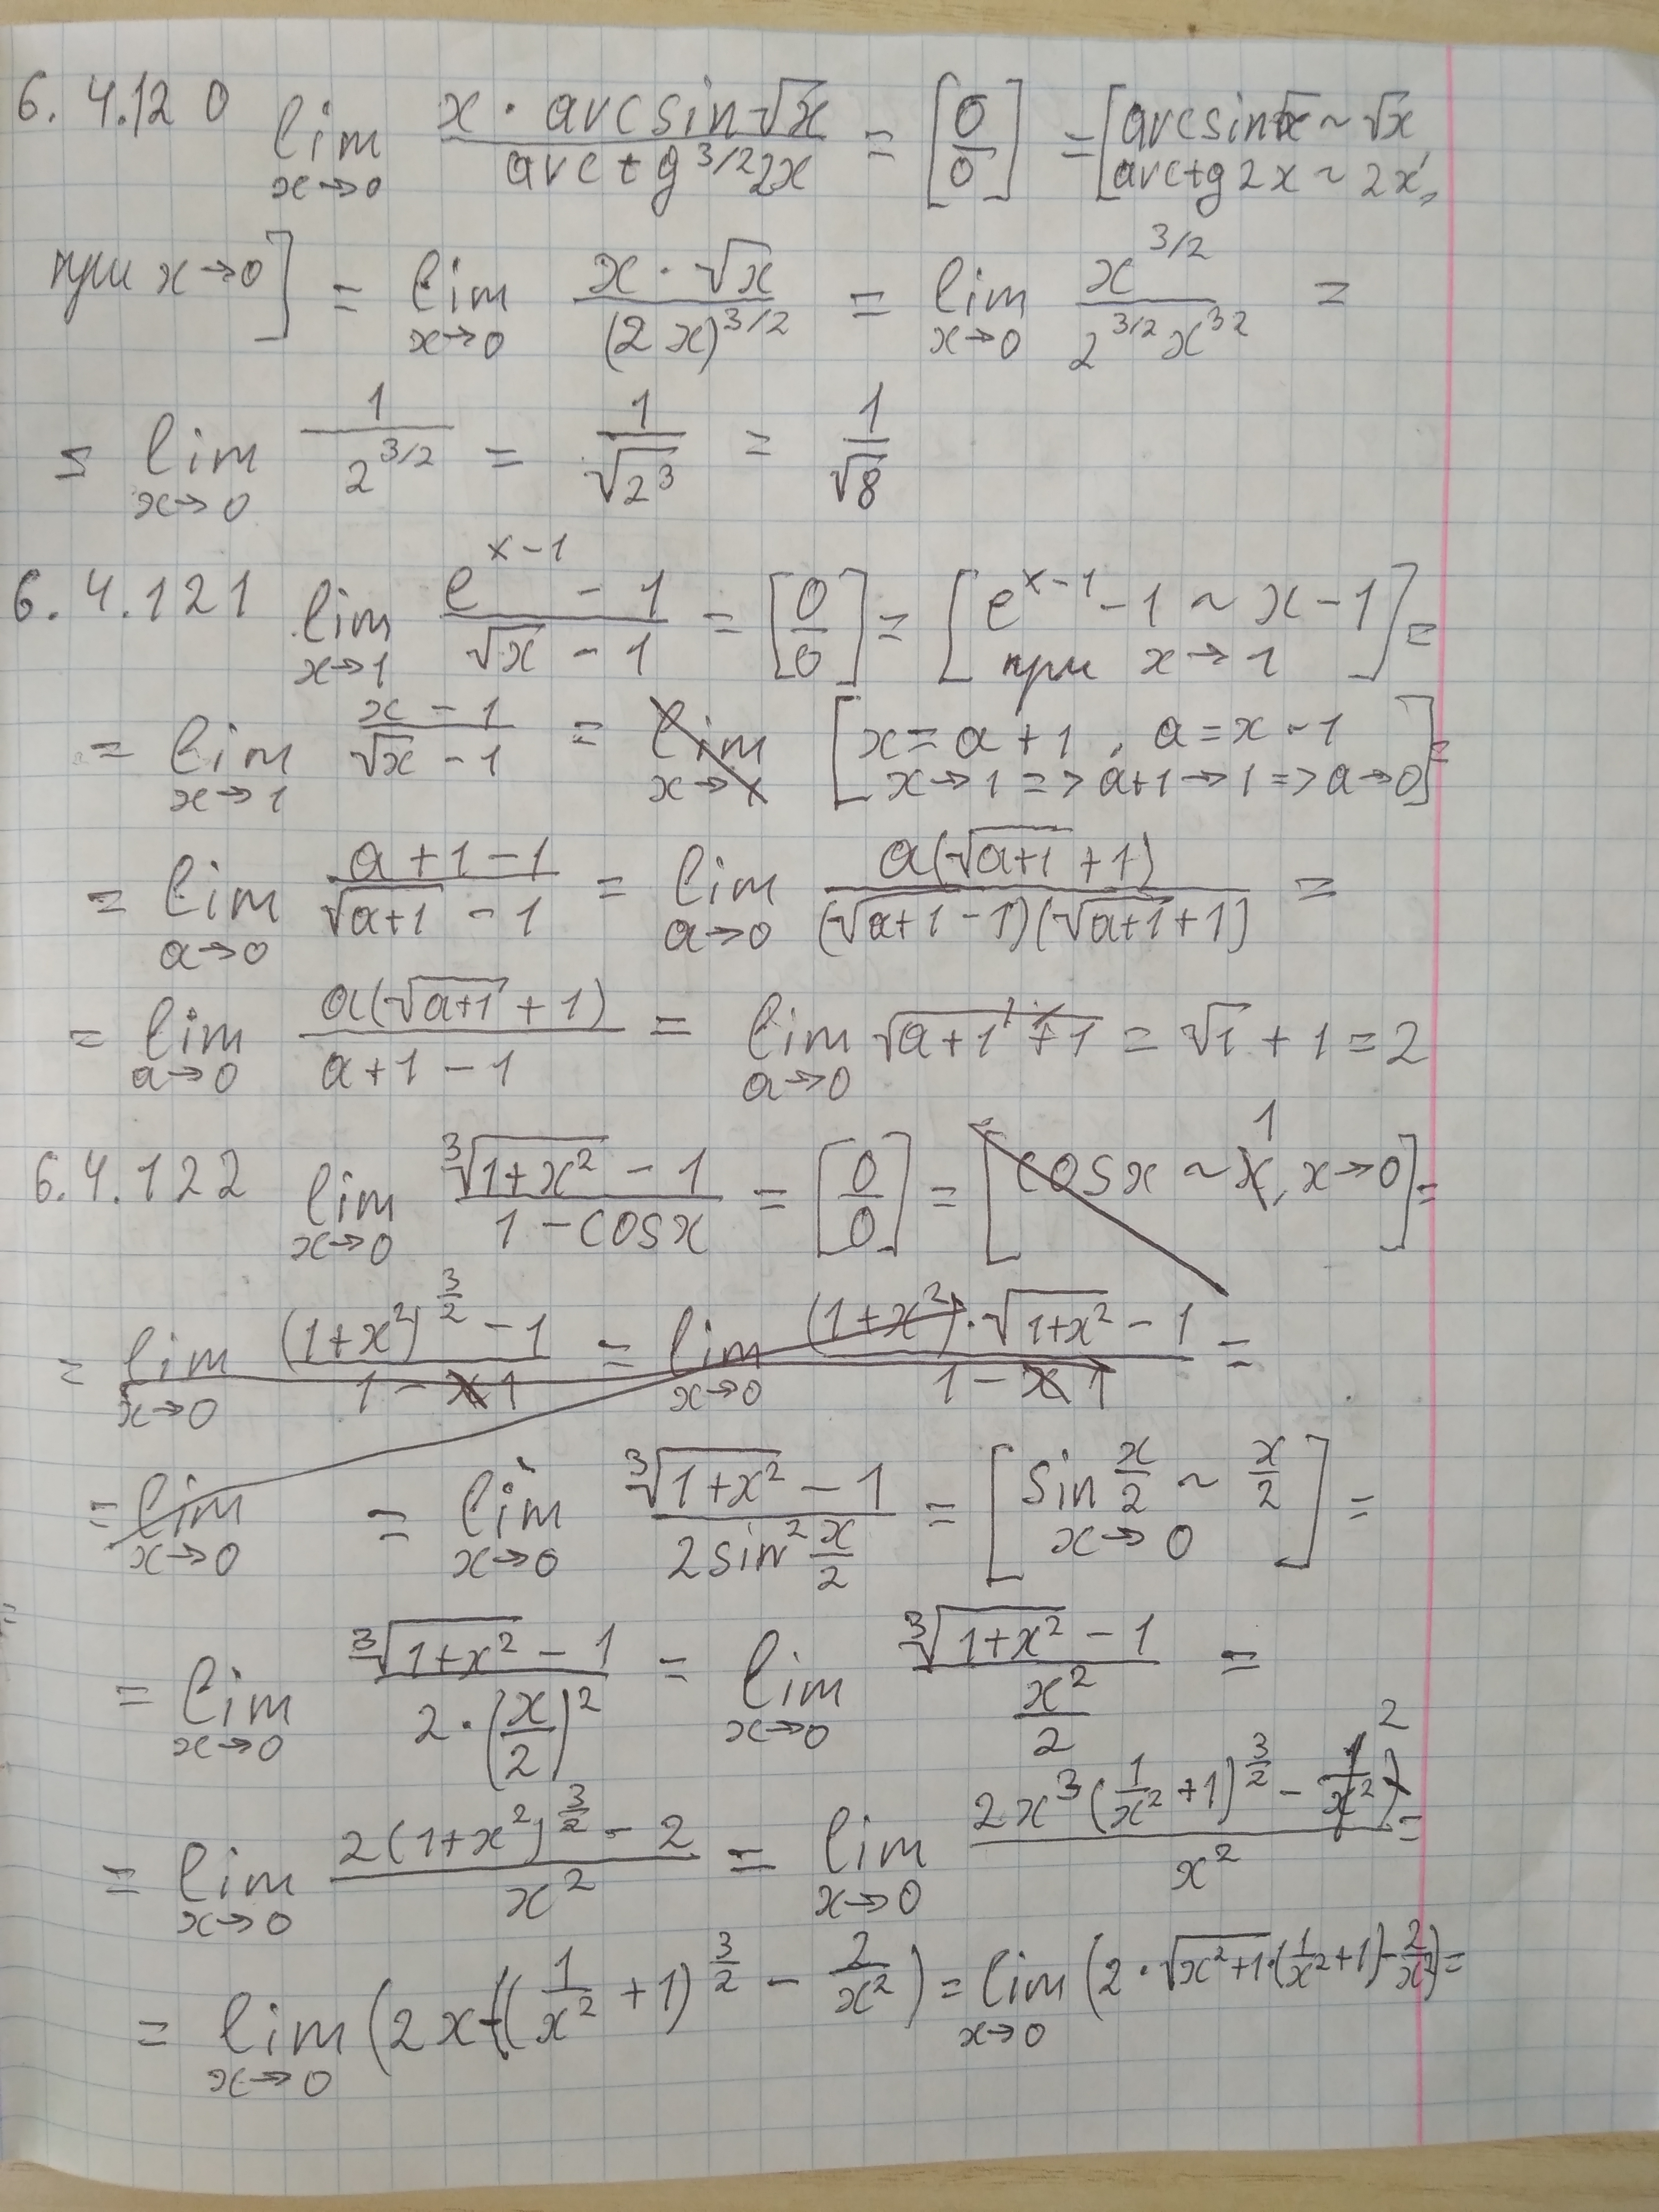 6.4.120 lim x→0 x · arcsin√x / arctg^3/2 2x = [0/0] = [arcsin√x ~ √x, arctg 2x ~ 2x,
при x→0] = lim x→0 x · √x / (2x)^3/2 = lim x→0 x^3/2 / 2^3/2 x^3 2 =
= lim x→0 1 / 2^3/2 = 1/√2^3 = 1/√8
6.4.121 lim x→1 e^x-1 - 1 / √x - 1 = [0/0] = [e^x-1 - 1 ~ x - 1 при x→1] =
= lim x→1 x - 1 / √x - 1 = lim x→1 [x = a + 1, a = x - 1 x→1 => a+1→1 => a→0] =
= lim a→0 a + 1 - 1 / √a+1 - 1 = lim a→0 a(√a+1 + 1) / (√a+1 - 1)(√a+1 + 1) =
= lim a→0 a(√a+1 + 1) / a + 1 - 1 = lim a→0 √a+1 + 1 = √1 + 1 = 2
6.4.122 lim x→0 ∛1+x² - 1 / 1 - cosx = [0/0] = [cosx ~ 1, x→0] =
= lim x→0 (1+x²)^3/2 - 1 / 1 - x 1 = lim x→0 (1+x²)·√1+x² - 1 / 1 - x 1 =
= lim x→0 = lim x→0 ∛1+x² - 1 / 2sin² x/2 = [sin x/2 ~ x/2 x→0] =
= lim x→0 ∛1+x² - 1 / 2·(x/2)² = lim x→0 ∛1+x² - 1 / x²/2 =
= lim x→0 2(1+x²)^3/2 - 2 / x² = lim x→0 2x³(1/x² + 1)^3/2 - 2 / x² =
= lim x→0 (2x((1/x² + 1)^3/2 - 2/x²) = lim x→0 (2·√x²+1·(1/x²+1) - 2/x²) =